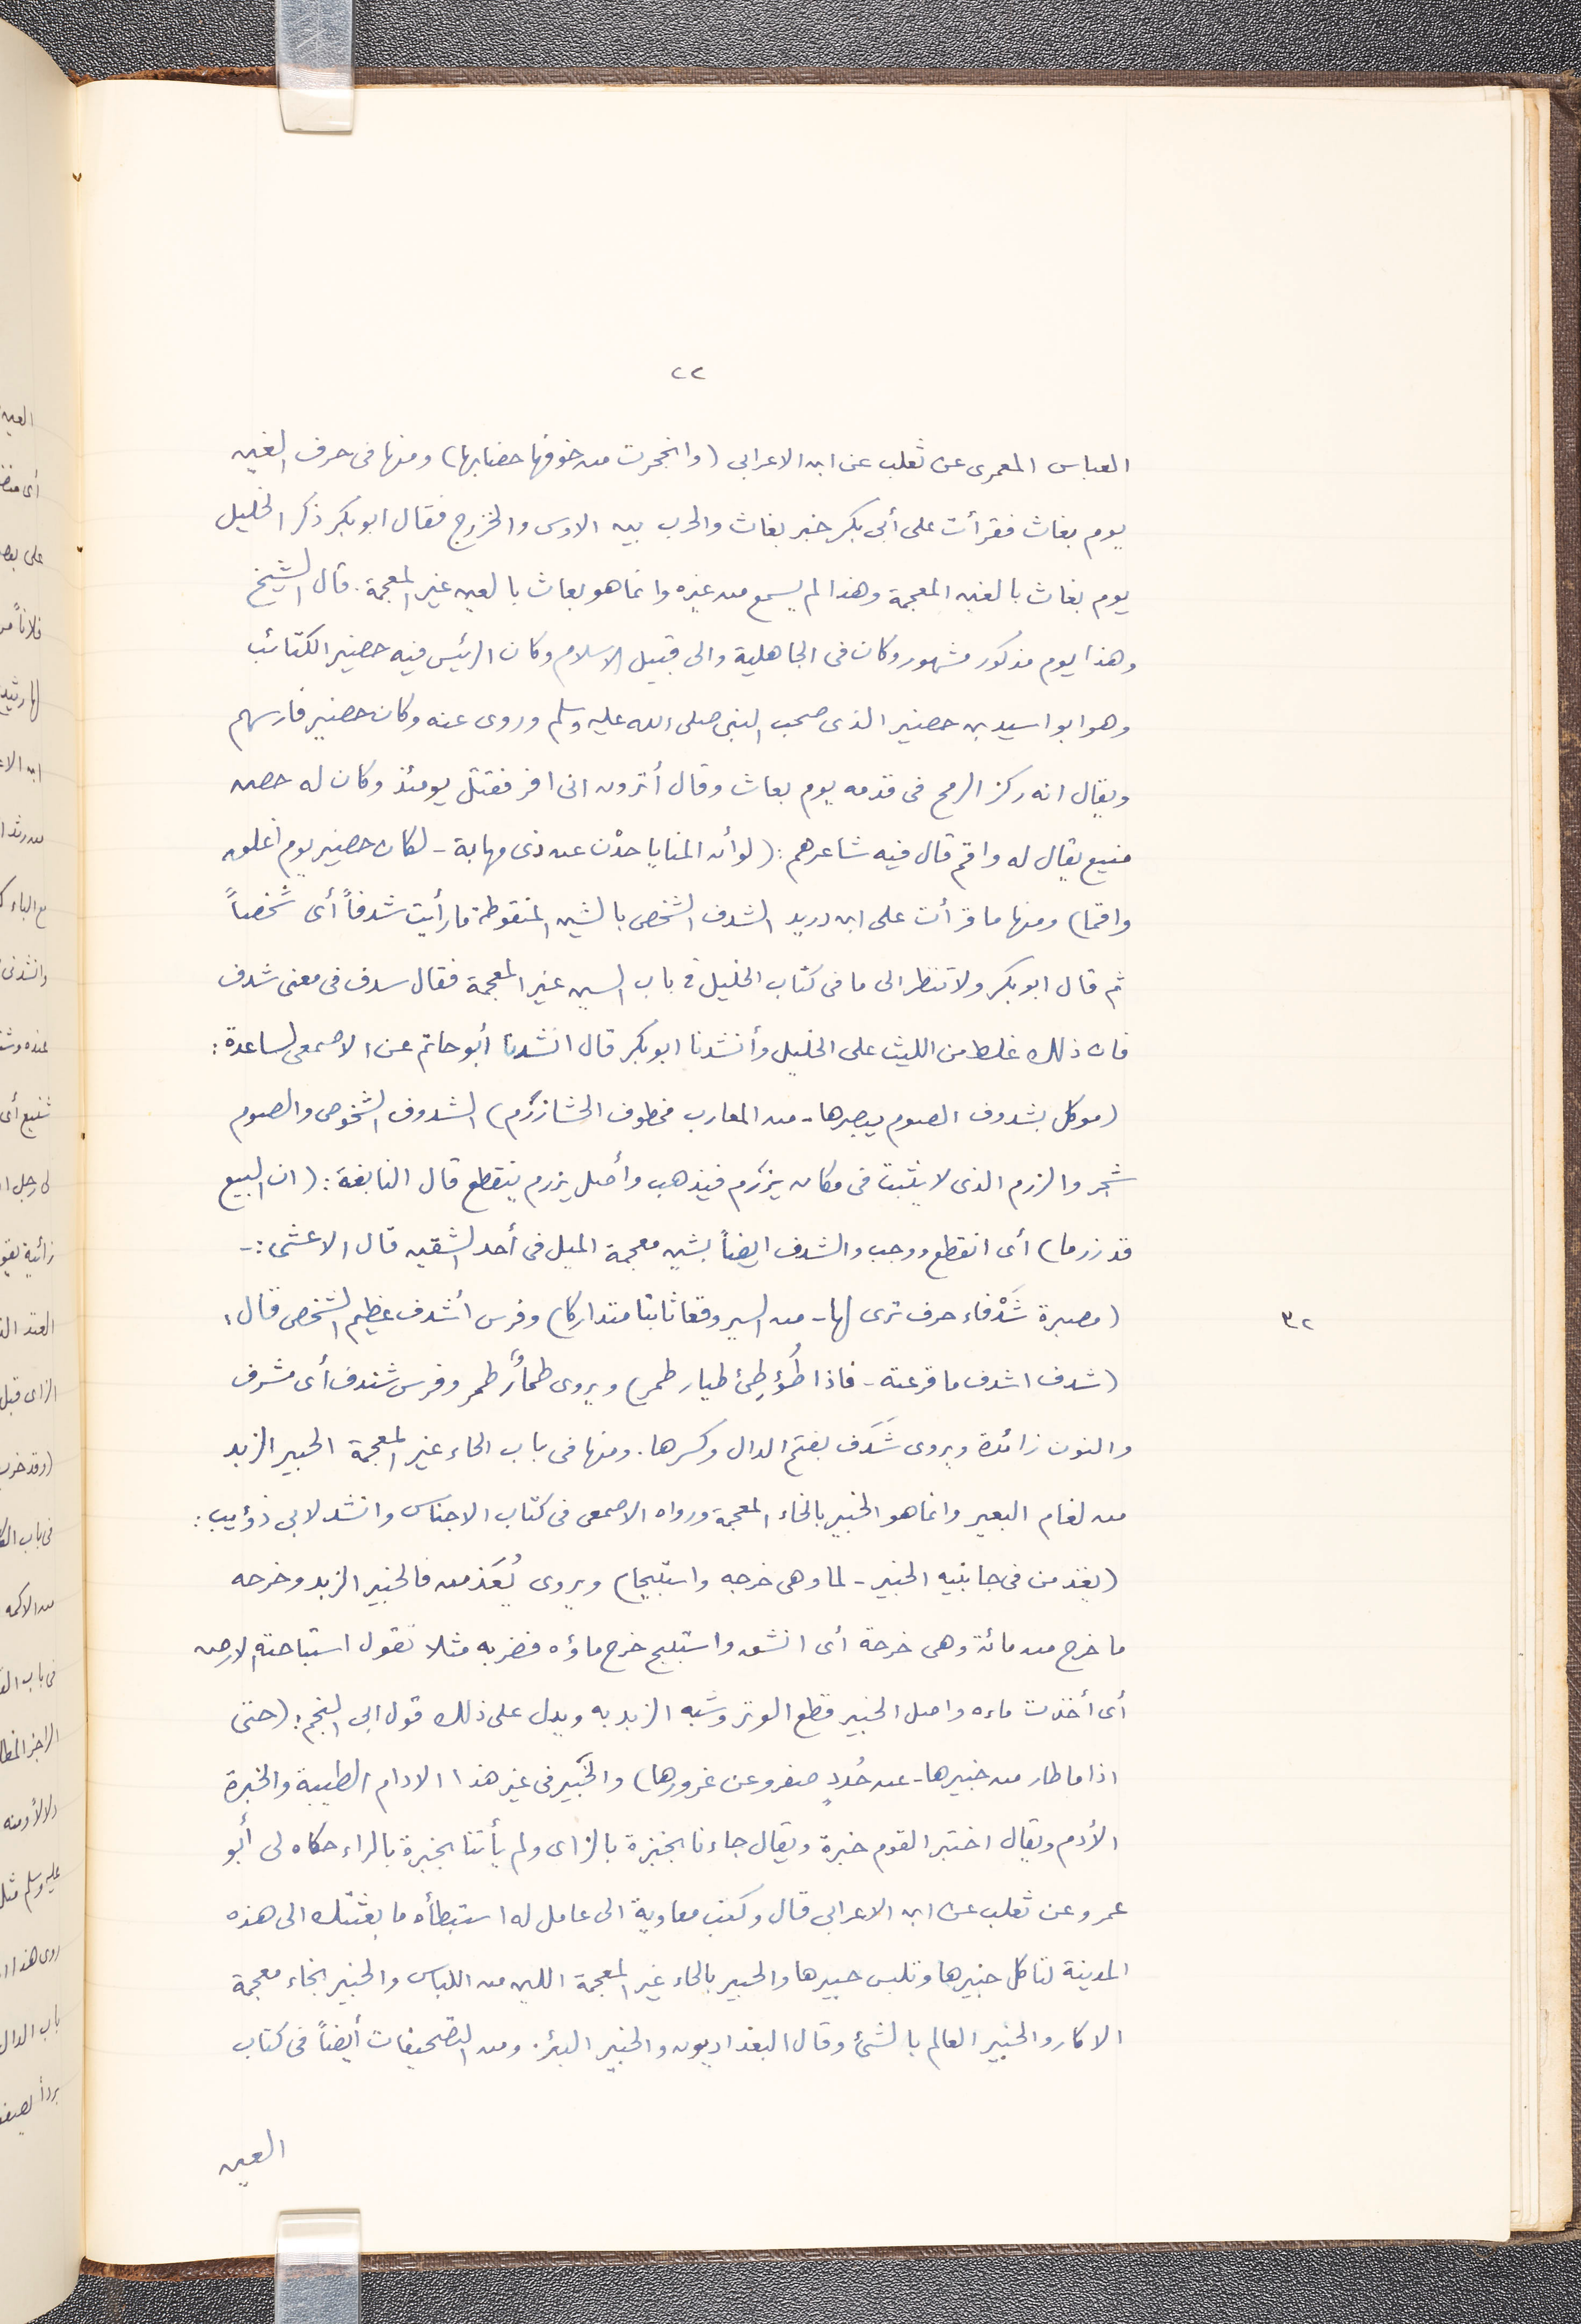 ٢٢
العباس المعمرى عن ثعلب عن ابن الاعرابى (وانجحرت من خوفها حضابها) ومنها فى حرف الغين
يوم بغاث فقرأت على أبى بكر خبر بغاث والحرب بين الاوس والخزرج فقال ابو بكر ذكر الخليل
يوم بغاث بالغين المعجمة وهذا لم يسمع من غيره وانما هو بعاث بالعين غير المعجمة. قال الشيخ
وهذا يوم مذكور مشهور وكان فى الجاهلية والى قبيل الاسلام وكان الرئيس فيه حضير الكتائب
وهو ابو اسيد بن حضير الذى صحب النبى صلى الله عليه وسلم وروى عنه وكان حضير فارسهم
ويقال انه ركز الرمح فى قدمه يوم بعاث وقال أترون انى افر فقتل يومئذ وكان له حصن
منيع يقال له واقم قال فيه شاعرهم: (لو أن المنايا حدْن عن ذى مهابة - لكان حضير يوم أغلق
واقما) ومنها ما قرأت على ابن دريد الشدف الشخص بالشين المنقوطة ما رأيت شدفاً أى شخصاً
ثم قال ابو بكر ولا تنظر الى ما فى كتاب الخليل فى باب السين غير المعجمة فقال سدف فى معنى شدف
فان ذلك غلط من الليث على الخليل وأنشدنا ابو بكر قال انشدنا أبو حاتم عن الاصمعى لساعدة:
(موكل بشدوف الصوم يبصرها - من المعارب مخطوف الحشا زَرِم) الشدوف الشخوص والصوم
شجر والزرم الذى لا يثبت فى مكان يزرَم فيذهب وأصل يزرم ينقطع قال النابغة: (ان البيع
قد زرما) أى انقطع ووجب والشدف ايضاً بشين معجمة الميل فى أحد الشقين قال الاعشى:-
(مصبرة شَدْفاء حرف ترى لها - من السير وقعا ثابتا متداركا) وفرس أشدف عظيم الشخص قال:
٣٢
(شدف اشدف ما قرعته - فاذا طُؤطِئ طيار طمر) ويروى طمأرٌ طمر وفرس شندف أى مشرف
والنون زائدة ويروى شَدَف بفتح الدال وكسرها. ومنها فى باب الحاء غير المعجمة الحبير الزبد
من لغام البعير وانما هو الخبير بالخاء المعجمة ورواه الاصمعى فى كتاب الاجناس وانشد لابى ذؤيب:
(يغذ من فى جانبيه الخبير - لما وهى خرجه واستبيحا) ويروى يُغَذمن فالخبير الزبد وخرجه
ما خرج من مائة وهى خرجة أى انشق واستبيح خرج ماؤه فضربه مثلا تقول استباحته الارض
أى أخذت ماءه واصل الخبير قطع الوتر وشبه الزبد به ويدل على ذلك قول ابى النجم: (حتى
اذا ما طار من خبيرها - عن حُددٍ صفر وعن غرورها) والخَبير فى غير هذا الادام الطيبة والخبرة
الأدم ويقال اختبر القوم خبرة ويقال جاءنا بخبزة بالزاى ولم يأتنا بخبرة بالراء حكاه لى أبو
عمر وعن ثعلب عن ابن الاعرابى قال وكتب معاوية الى عامل له استبطأه ما بعثتك الى هذه
المدينة لتاكل خبيرها وتلبس حبيرها والحبير بالحاء غير المعجمة اللين من اللباس والخبير بخاء معجمة
الاكار والخبير العالم بالشئ وقال البغداديون والخبير البئر. ومن التصحيفات أيضاً فى كتاب
العين